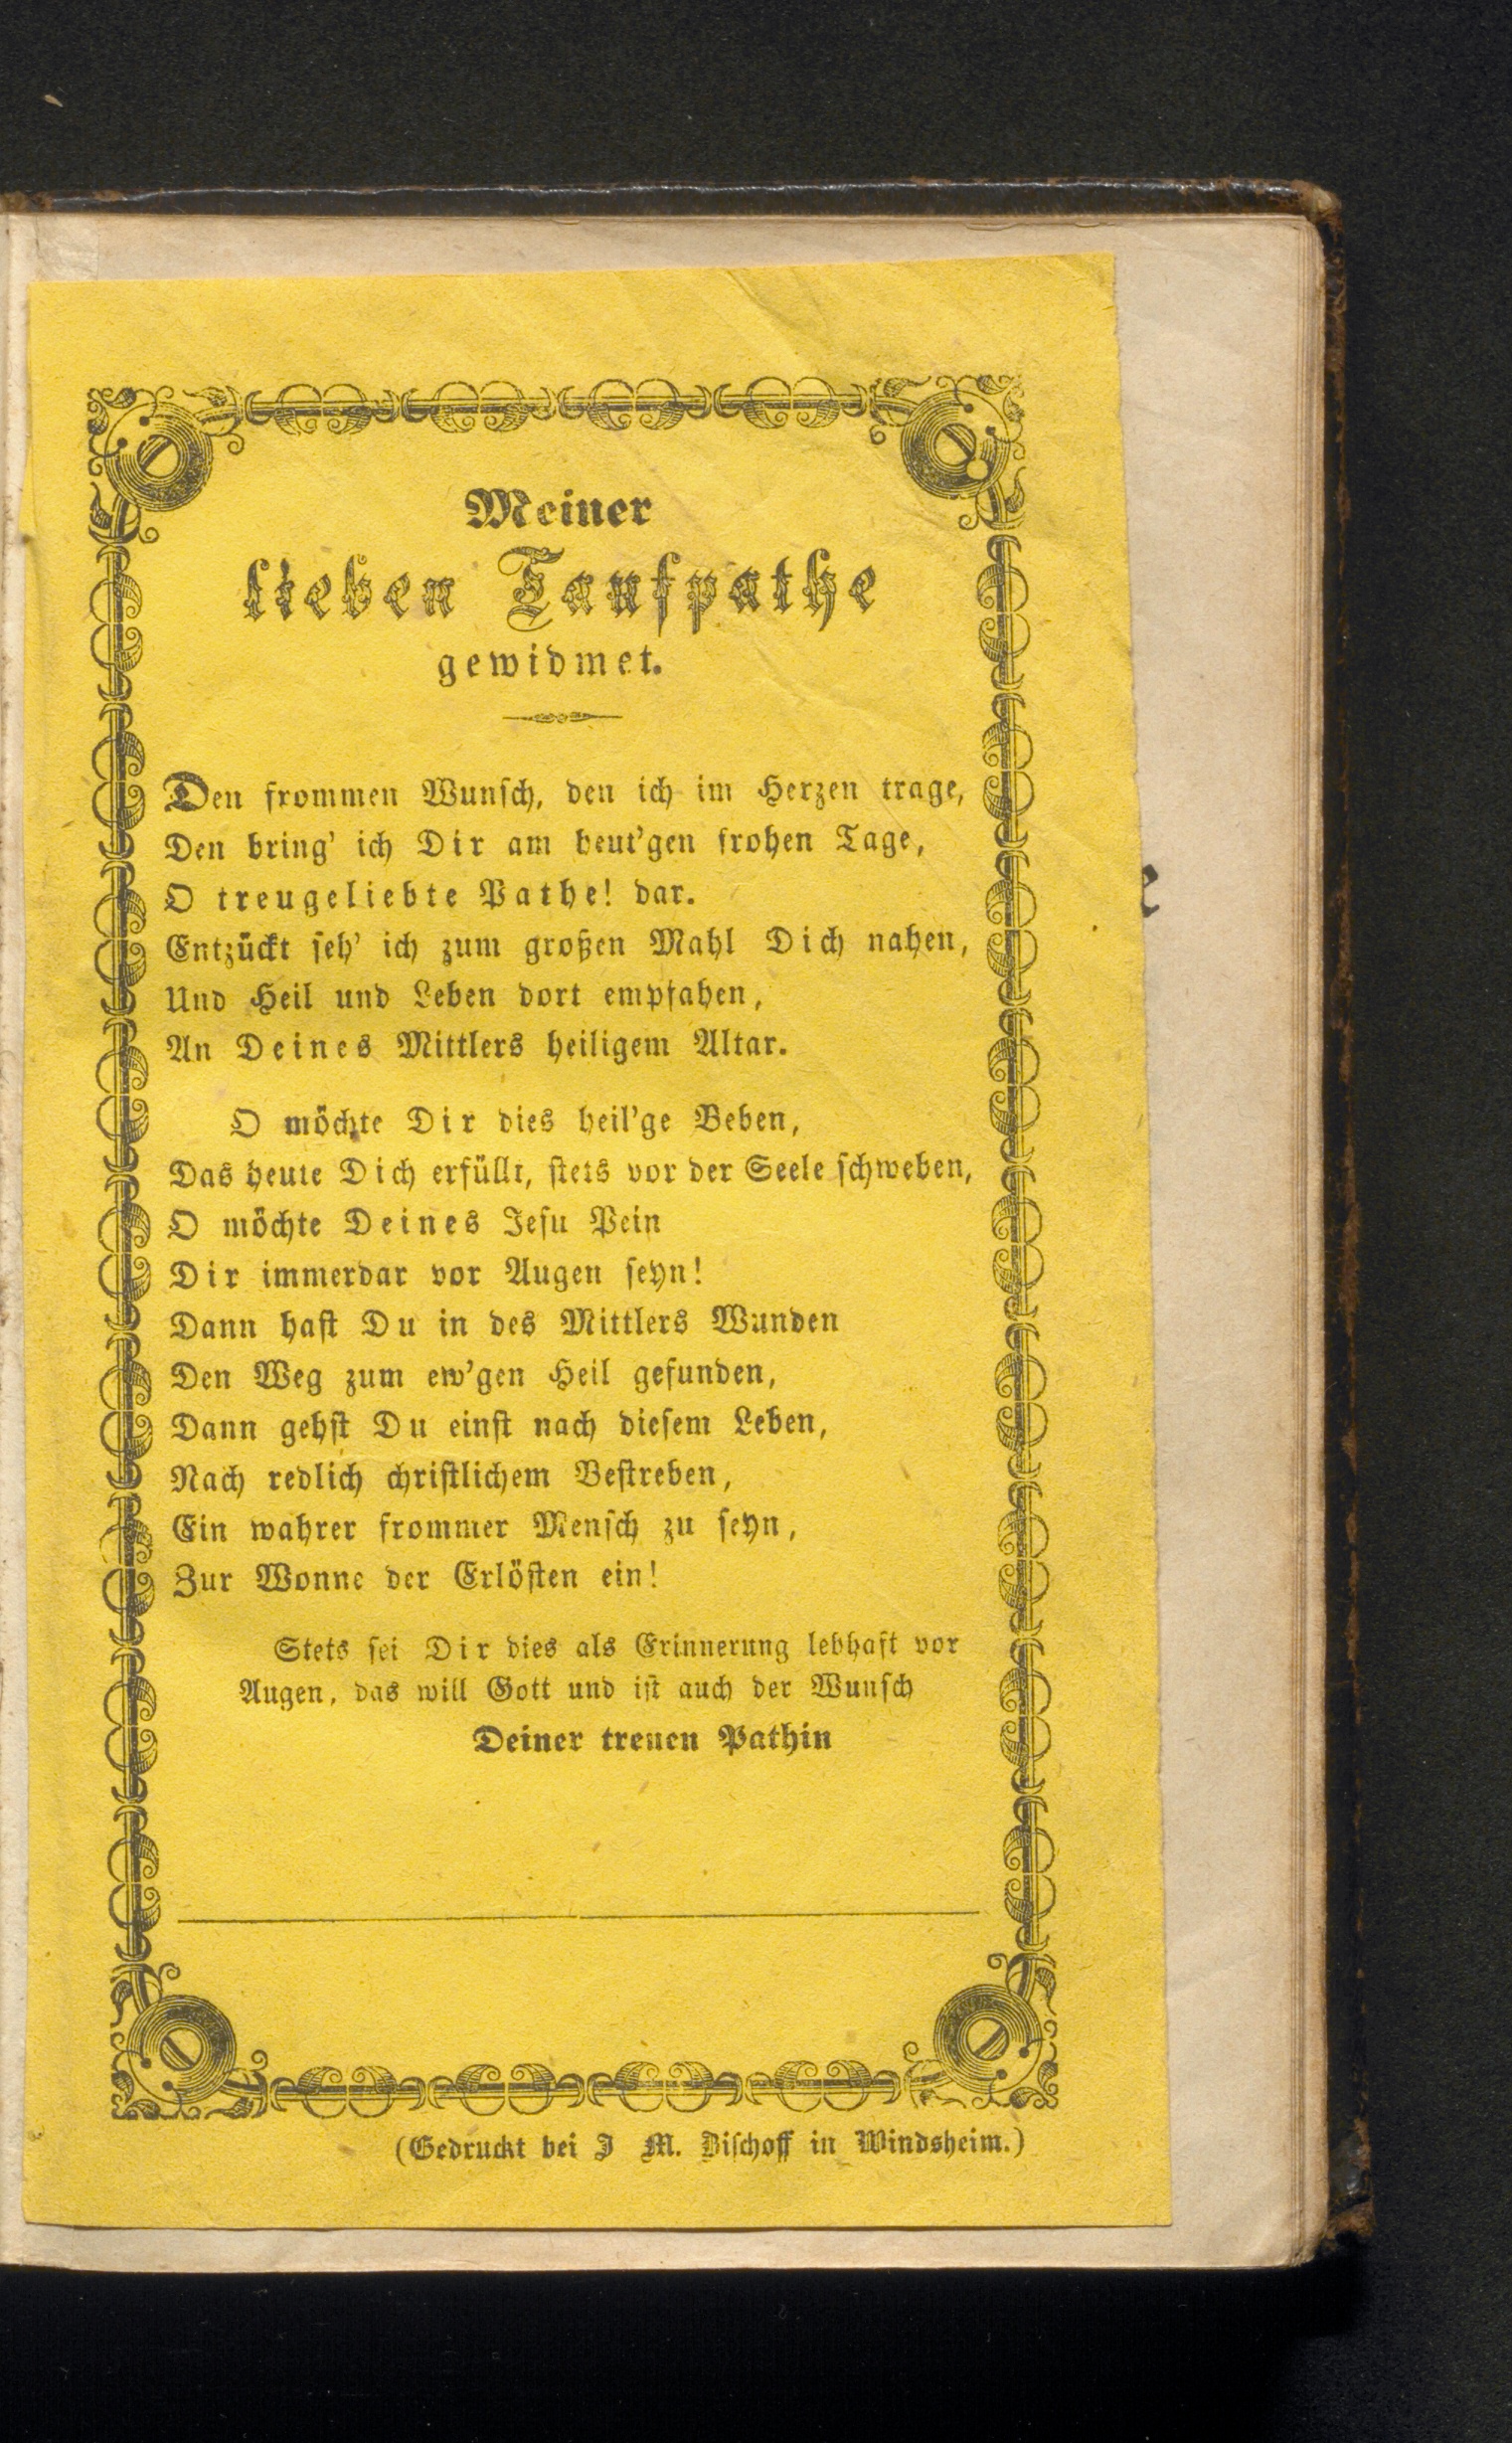 Meiner
lieben Taufpathe
gewidmet.
Den frommen Wunsch, den ich im Herzen trage,
Den bring' ich Dir am heut'gen frohen Tage,
O treugeliebte Pathe! dar.
Entzückt seh' ich zum großen Mahl Dich nahen,
Und Heil und Leben dort empfahen,
An Deines Mittlers heiligem Altar.
O möchte Dir dies heil'ge Beben,
Das heute Dich erfüllt, stets vor der Seele schweben,
O möchte Deines Jesu Pein
Dir immerdar vor Augen seyn!
Dann hast Du in des Mittlers Wunden
Den Weg zum ew'gen Heil gefunden,
Dann gehst Du einst nach diesem Leben,
Nach redlich christlichem Bestreben,
Ein wahrer frommer Mensch zu seyn,
Zur Wonne der Erlösten ein!
Stets sei Dir dies als Erinnerung lebhaft vor
Augen, das will Gott und ist auch der Wunsch
Deiner treuen Pathin
(Gedruckt bei J M. Bischoff in Windsheim.)